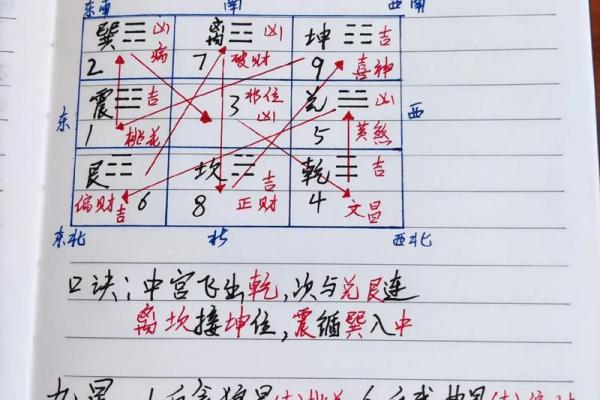 东南 南 西南
巽 凶 离 凶 坤 吉
病 破财 喜神
2 7 9
东 震 吉 3 邪位 兑 凶 西
凶
1 桃花 5 黄煞
艮 坎 吉 乾 吉
偏财 吉 6 8 正财 4 文昌
东北 北 西北
口诀:中宫飞出乾,次与兑艮连
离坎接坤位,震循巽入中